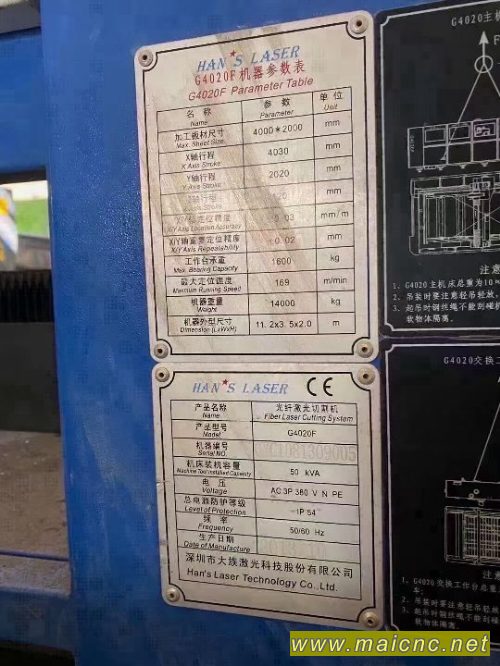 HAN'S LASER
G4020F 机器参数表
G4020F Parameter Table
名 称 参 数 单 位
Name Parameter Unit
加工板材尺寸 4000*2000 mm
Max. Sheet Size
X轴行程 4030 mm
X Axis Stroke
Y轴行程 2020 mm
Y Axis Stroke
mm
X/Y轴定位精度 ±0.03 mm/m
X/Y Axis Location Accuracy
X/Y轴重复定位精度 ±0.02 mm
X/Y Axis Repeatability
工作台承重 1600 kg
Max. Bearing Capacity
最大定位速度 169 m/min
Maximum Running Speed
机器重量 14000 kg
Weight
机器外型尺寸 11.2x3.5x2.0 m
Dimension (LxWxH)
HAN'S LASER CE
产品名称 光纤激光切割机
Name Fiber Laser Cutting System
产品型号 G4020F
Model
机器编号
Serial NO.
机床装机容量 50 kVA
Machine Tool Installed Capacity
电 压 AC 3P 380 V N PE
Voltage
总电源防护等级 IP 54
Level of Protection
频 率 50/60 Hz
Frequency
生产日期
Date of Manufacture
深圳市大族激光科技股份有限公司
Han's Laser Technology Co.,Ltd.
G4020主机
F
注意
1、G4020主机床总重为10
2、吊装时要注意轻吊轻放,
3、起吊时钢丝绳不能刮碰机
软物体隔离。
G4020交换工
注
1、G4020交换工作台总重
车;
2、吊装时要注意轻吊轻
3、起吊时钢丝绳不能刮
软物体隔离。
www.maicnc.net